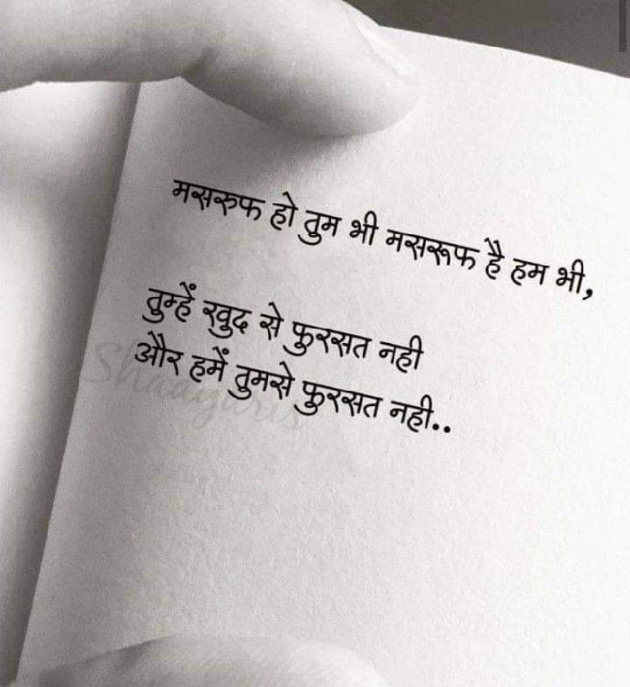 मसरुफ हो तुम भी मसरूफ है हम भी,
तुम्हें खुद से फुरसत नही
और हमें तुमसे फुरसत नही..